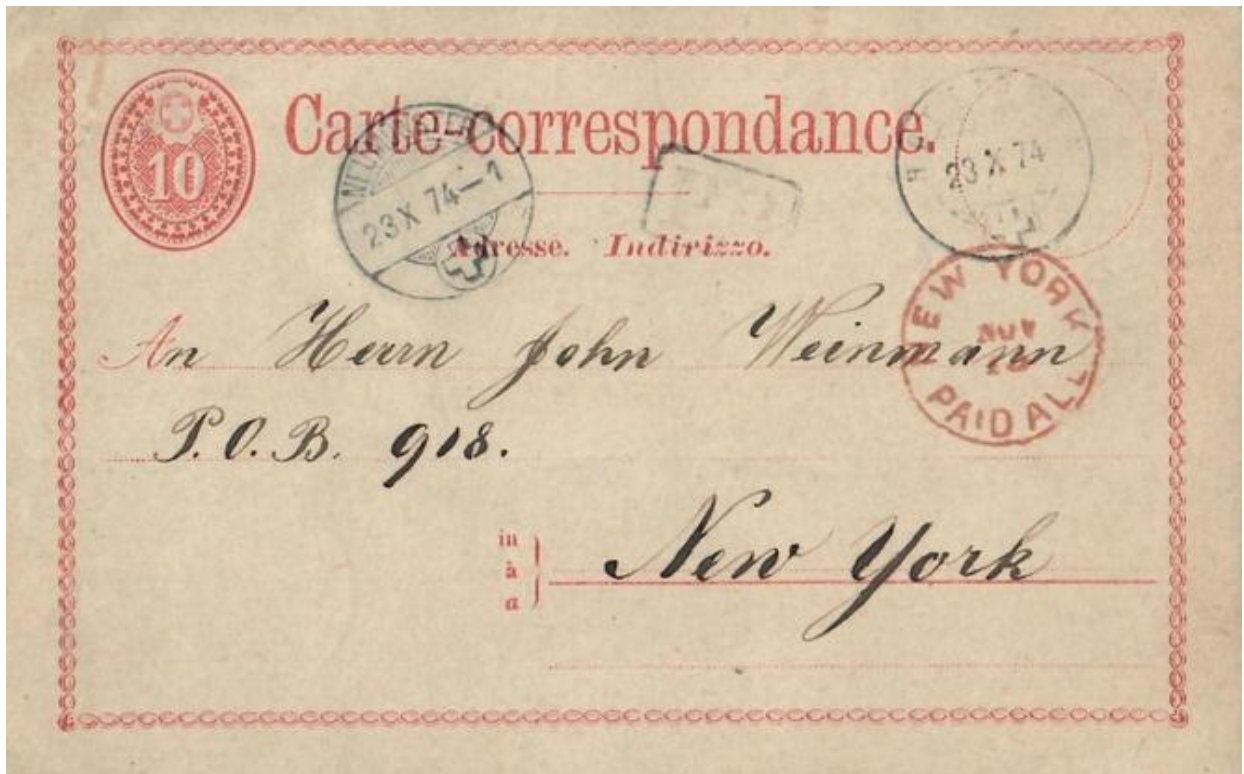 10
Carte-correspondance.
23 X 74-1
23 X 74
Adresse. Indirizzo.
NEW YORK
NOV
PAID ALL
An Herrn John Weinmann
P.O.B. 918.
in
à
a
New York